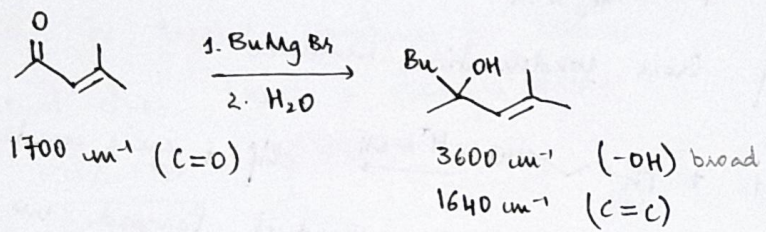 O
1. BuMgBr
2. H₂O
Bu OH
1700 cm⁻¹ (C=O)
3600 cm⁻¹ (-OH) broad
1640 cm⁻¹ (C=C)